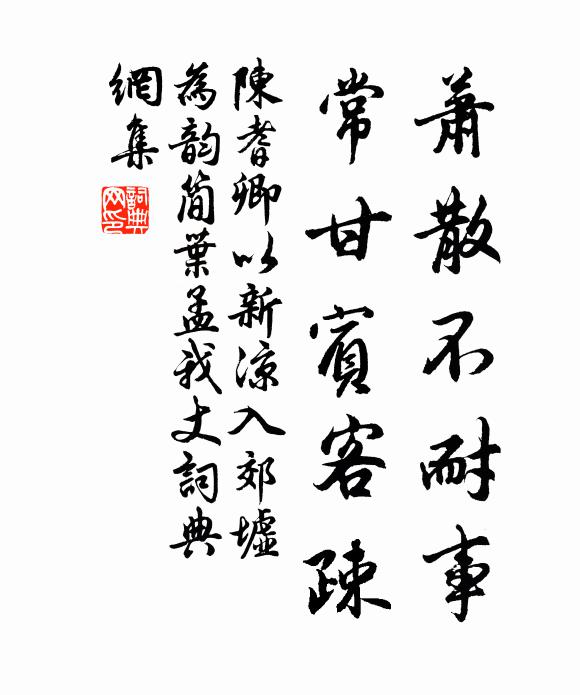 蕭散不耐事
常甘賓客疎
陳耆卿以新涼入郊墟
為韵簡葉孟我丈詞典
網集
詞典网印